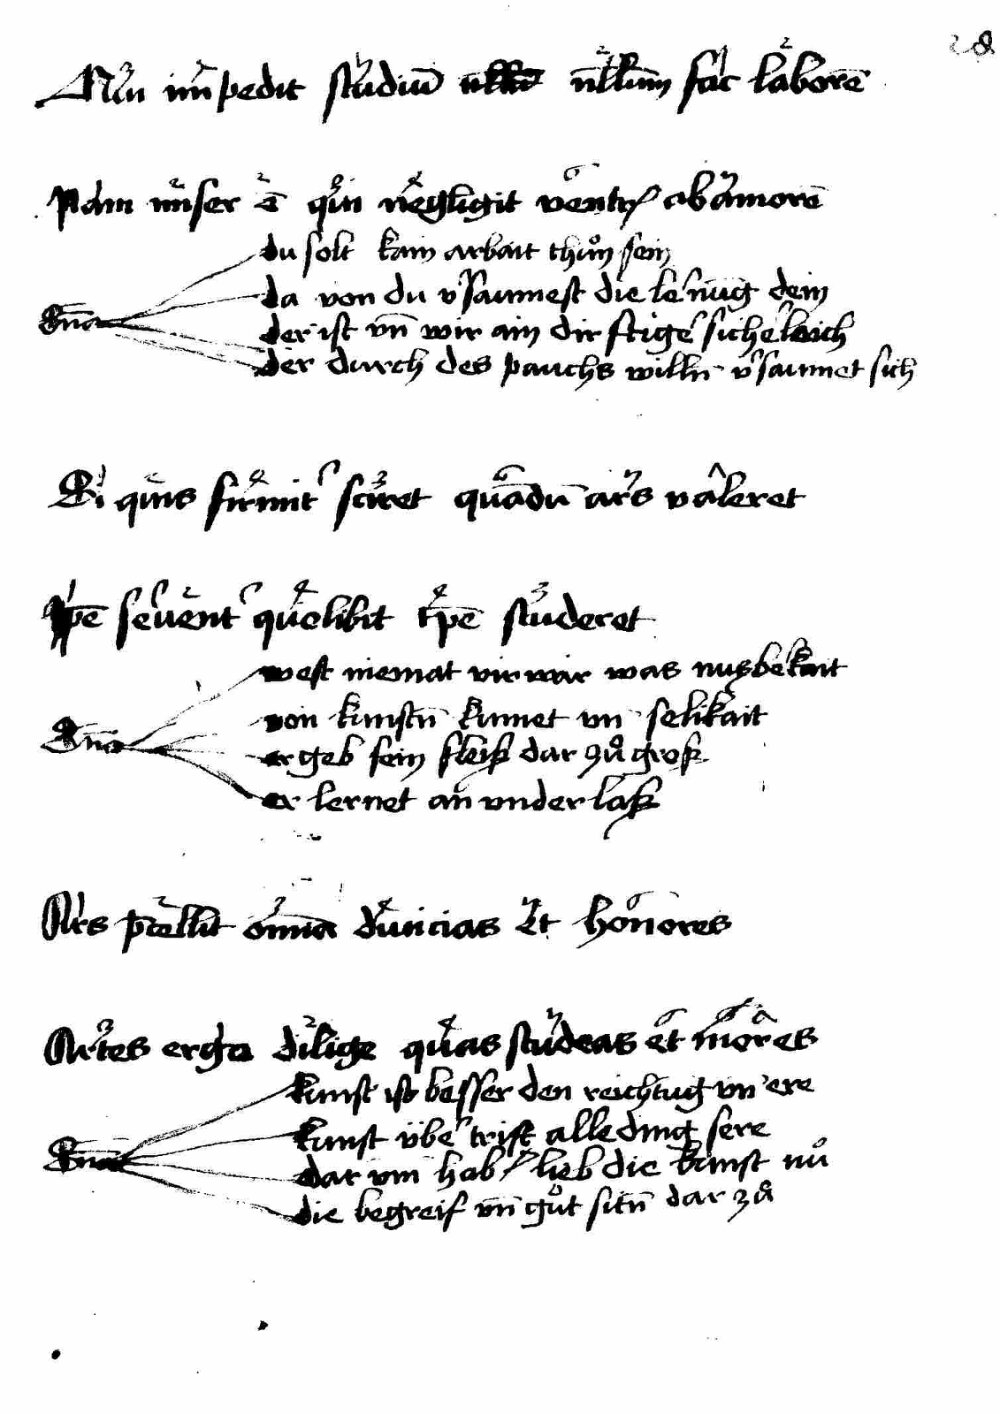 28
Qui impedit studiū nullum fac laborē
Nam miser ē qui negligit ventrꝭ ob amorē
du solt kain arbait thuͦn sein
da von du vsaumest die lernūg dein
der ist vn̄ wir ain dirftiger sicherleich
der durch des pauchs willn vsaumet sich
Si quis firmit sciret quādū ars valeret
Ipē servent quelibit tp̄e studeret
west niemāt vir war was nuczbekait
von kunstn̄ kumet vn̄ selikait
er geb sein fleiß dar zuͦ groß
er lernet an vnderlaß
Ars p̄cellit omnia divicias et honores
Artes ergo dilige quas studeas et mores
kunst ist besser den reichtūg vn̄ ere
kunst über trift alle ding sere
dar vm habꝭ lieb die kunst nuͦ
die begreif vn̄ guͦt sitn̄ dar zuͦ